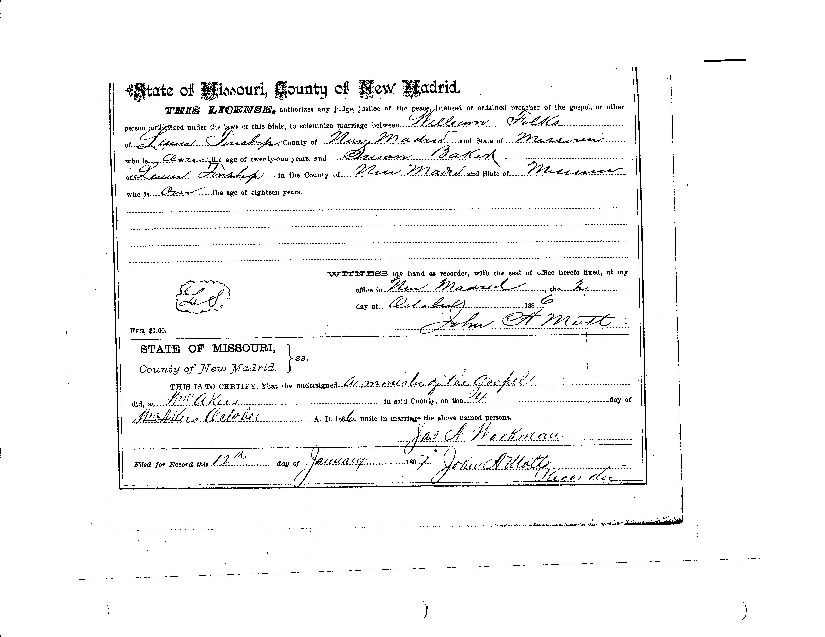 State of Missouri, County of New Madrid.
THIS LICENSE, authorizes any judge, justice of the peace, licensed or ordained preacher of the gospel, or other
person authorized under the laws of this State, to solemnize marriage between William Folks
of County of New Madrid and State of Missouri
who is Over the age of twenty-one years and Baker
of in the County of New Madrid and State of Missouri
who is Over the age of eighteen years.
WITNESS my hand as recorder, with the seal of office hereto fixed, at my
office in New Madrid the 2
day of October 1886
L.S.
John A Mott
STATE OF MISSOURI,
County of New Madrid. } ss.
THIS IS TO CERTIFY, That the undersigned A minister of the Gospel
did, at in said County, on the day of
October A. D. 1886, unite in marriage the above named persons.
Jas A Workman
Filed for Record this 12th day of January 1887 John A Mott
Recorder